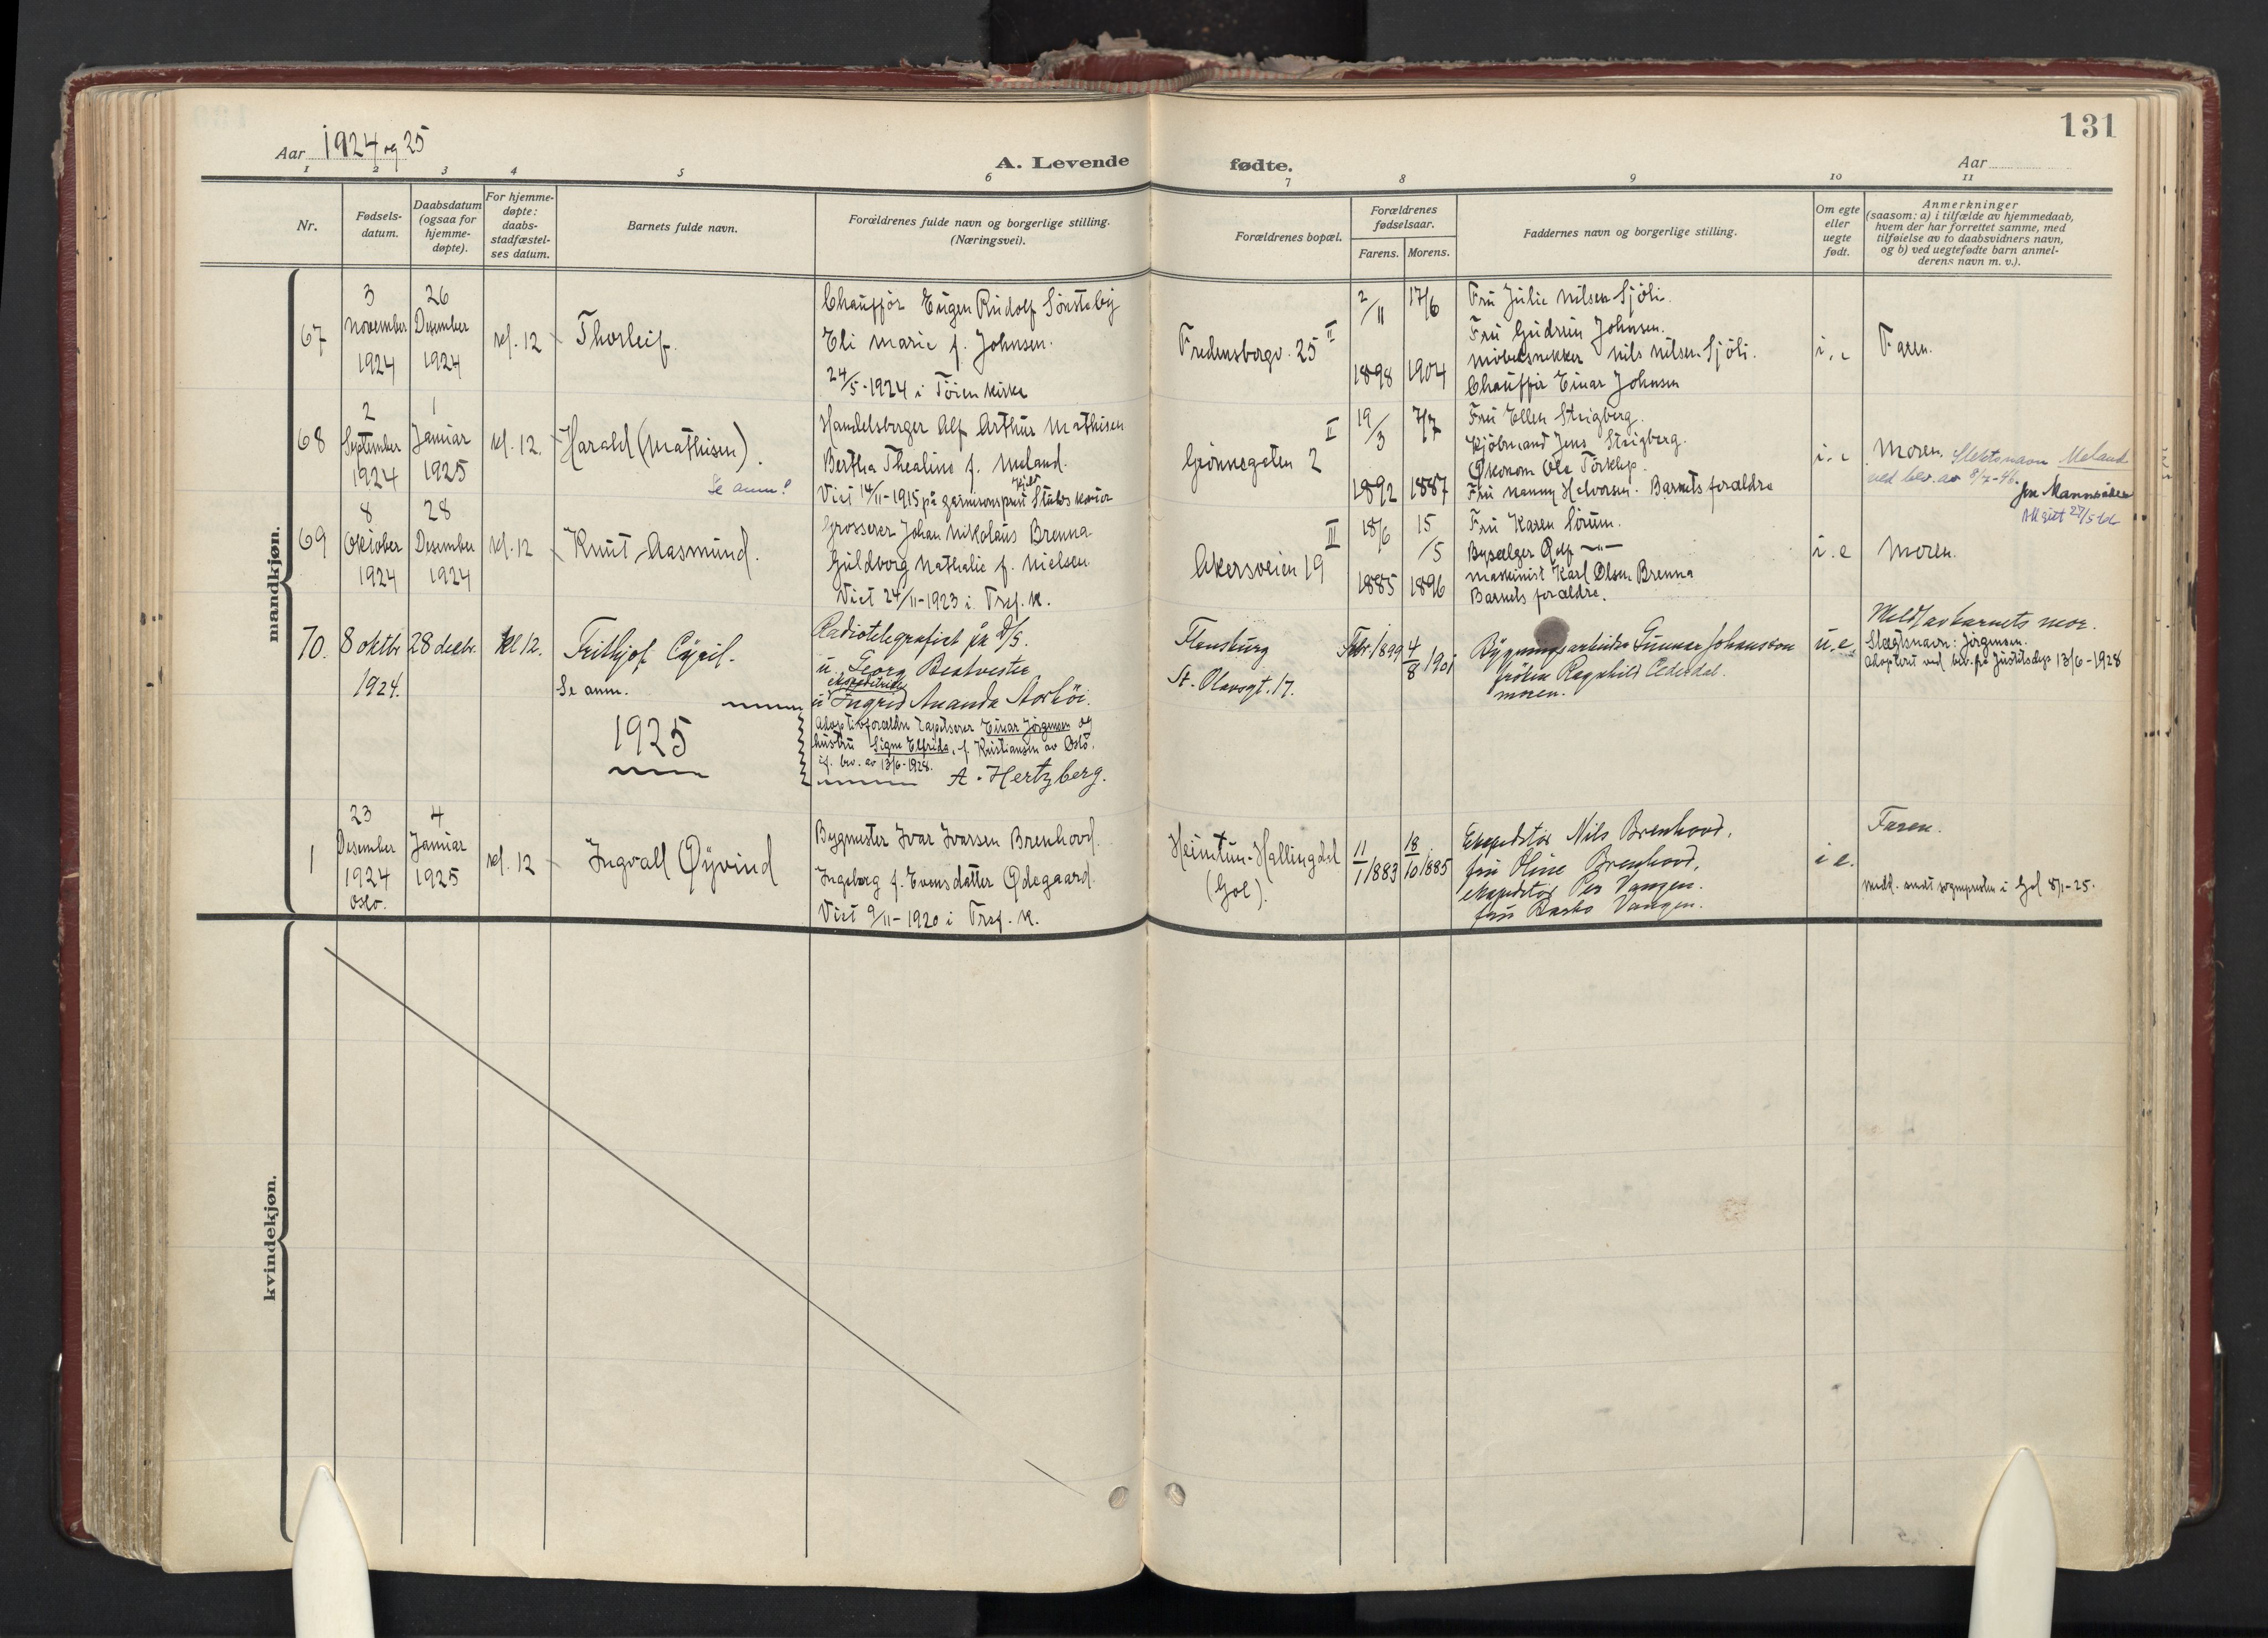 131
Aar 1924 og 25
A. Levende fødte.
Aar
1 2 3 4 5 6 7 8 9 10 11
Nr.
Fødsels-
datum.
Daabsdatum
(ogsaa for
hjemme-
døpte).
For hjemme-
døpte:
daabs-
stadfæstel-
ses datum.
Barnets fulde navn.
Forældrenes fulde navn og borgerlige stilling.
(Næringsvei).
Forældrenes bopæl.
Forældrenes
fødselsaar.
Farens. Morens.
Faddernes navn og borgerlige stilling.
Om egte
eller
uegte
født.
Anmerkninger
(saasom: a) i tilfælde av hjemmedaab,
hvem der har forrettet samme, med
tilføielse av to daabsvidners navn,
og b) ved uegtefødte barn anmel-
derens navn m. v.).
mandkjøn.
67
3
November
1924
26
Desember
1924
kl. 12
Thorleif.
Chauffør Eugen Rudolf Sönsteby
Eli Marie f. Johnsen.
24/5-1924 i Töien kirke
Fredensborgv. 25 II
2/11
1898
17/6
1904
Fru Julie Nilsen Sjöli.
Fru Gudrun Johnsen.
Möbelsnekker Nils Nilsen Sjöli.
Chaufför Einar Johnsen
i. e
Faren.
68
2
September
1924
1
Januar
1925
kl. 12.
Harald (Mathisen).
Se anm!
Handelsborger Alf Arthur Mathisen
Bertha Thealine f. Meland.
Viet 14/11-1915 på garnisonsprest
Grönnegaten 2 II
19/3
1892
7/7
1887
Fru Ellen Strigberg.
Kjöbmand Jens Strigberg.
Økonom Ole Torklep.
Fru Nanny Halvorsen. Barnets forældre
i. e
Moren. Slektsnavn Meland
ved bev. av 8/7-46.
69
8
Oktober
1924
28
Desember
1924
kl. 12
Knut Aasmund.
Grosserer Johan Nikolaus Brenna
Guldborg Nathalie f. Nielsen.
Viet 24/11-1923 i Tref. k.
Akersveien 19 III
18/6
1885
15/5
1896
Fru Karen Sörum.
Byselger Rolf —"—
Maskinist Karl Olsen Brenna
Barnets forældre.
i. e
Moren.
70.
8 oktbr
1924.
28 decbr.
kl 12.
Frithjof Cyril.
Se anm.
Radiotelegrafist på D/S.
u. Georg Beatvestre
ekspeditrice
u Ingrid Ananda Aarhöi.
Adoptivforældre Tapetserer Einar Jörgensen og
hustru Signe Elfrida, f. Kristiansen av Oslo.
if. bev. av 13/6-1928.
A. Hertzberg.
Flensburg
St. Olavsgt. 17.
Febr. 1899
4/8 1901
Bygningsarbeider Gunnar Johansson
fröken Ragnhild Cedesdal.
moren.
u. e.
Meldt av barnets mor.
Slægtsnavn: Jörgensen.
adoptert ved bev. fra Justitsdep 13/6-1928
1925
1
23
Desember
1924
Oslo.
4
Januar
1925
kl. 12
Ingvall Øyvind
Bygmester Ivar Ivarsen Brenhovd.
Ingeborg f. Evensdatter Ødegaard.
Viet 9/11-1920 i Tref. k.
Heimtun-Hallingdal
(Gol).
11/1 1883
18/10 1885
Ekspeditör Nils Brenhovd,
fru Oline Brenhovd,
ekspeditör Per Vangen.
fru Vangen.
i e.
Faren.
medd. sendt sogneprsten i Gol 8/1-25.
kvindekjøn.